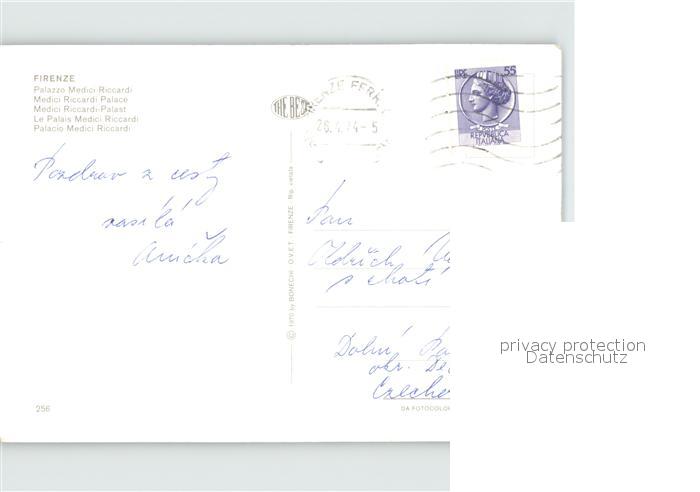 FIRENZE
Palazzo Medici Riccardi
Medici Riccardi Palace
Medici Riccardi-Palast
Le Palais Medici Riccardi
Palacio Medici Riccardi
Pozdrav z cesty
zasílá
Anička
THE BEST
26.4.74-5
LIRE 55
REPVBBLICA
ITALIANA
© 1970 by BONECHI O.V.E.T. FIRENZE Rip. vietata
Pan
Oldřich
s chotí
Dolní
okr. De
Czecho
256
DA FOTOCOLOR
privacy protection
Datenschutz